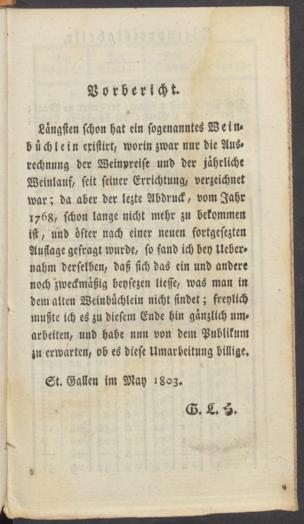 Vorbericht.
Längsten schon hat ein sogenanntes Wein-
büchlein existirt, worin zwar nur die Aus-
rechnung der Weinpreise und der jährliche
Weinlauf, seit seiner Errichtung, verzeichnet
war; da aber der lezte Abdruck, vom Jahr
1768, schon lange nicht mehr zu bekommen
ist, und öfter nach einer neuen fortgesezten
Auflage gefragt wurde, so fand ich bey Ueber-
nahm derselben, daß sich das ein und andere
noch zweckmäßig beysezen liesse, was man in
dem alten Weinbüchlein nicht findet; freylich
mußte ich es zu diesem Ende hin gänzlich um-
arbeiten, und habe nun von dem Publikum
zu erwarten, ob es diese Umarbeitung billige.
St. Gallen im May 1803.
G. L. H.